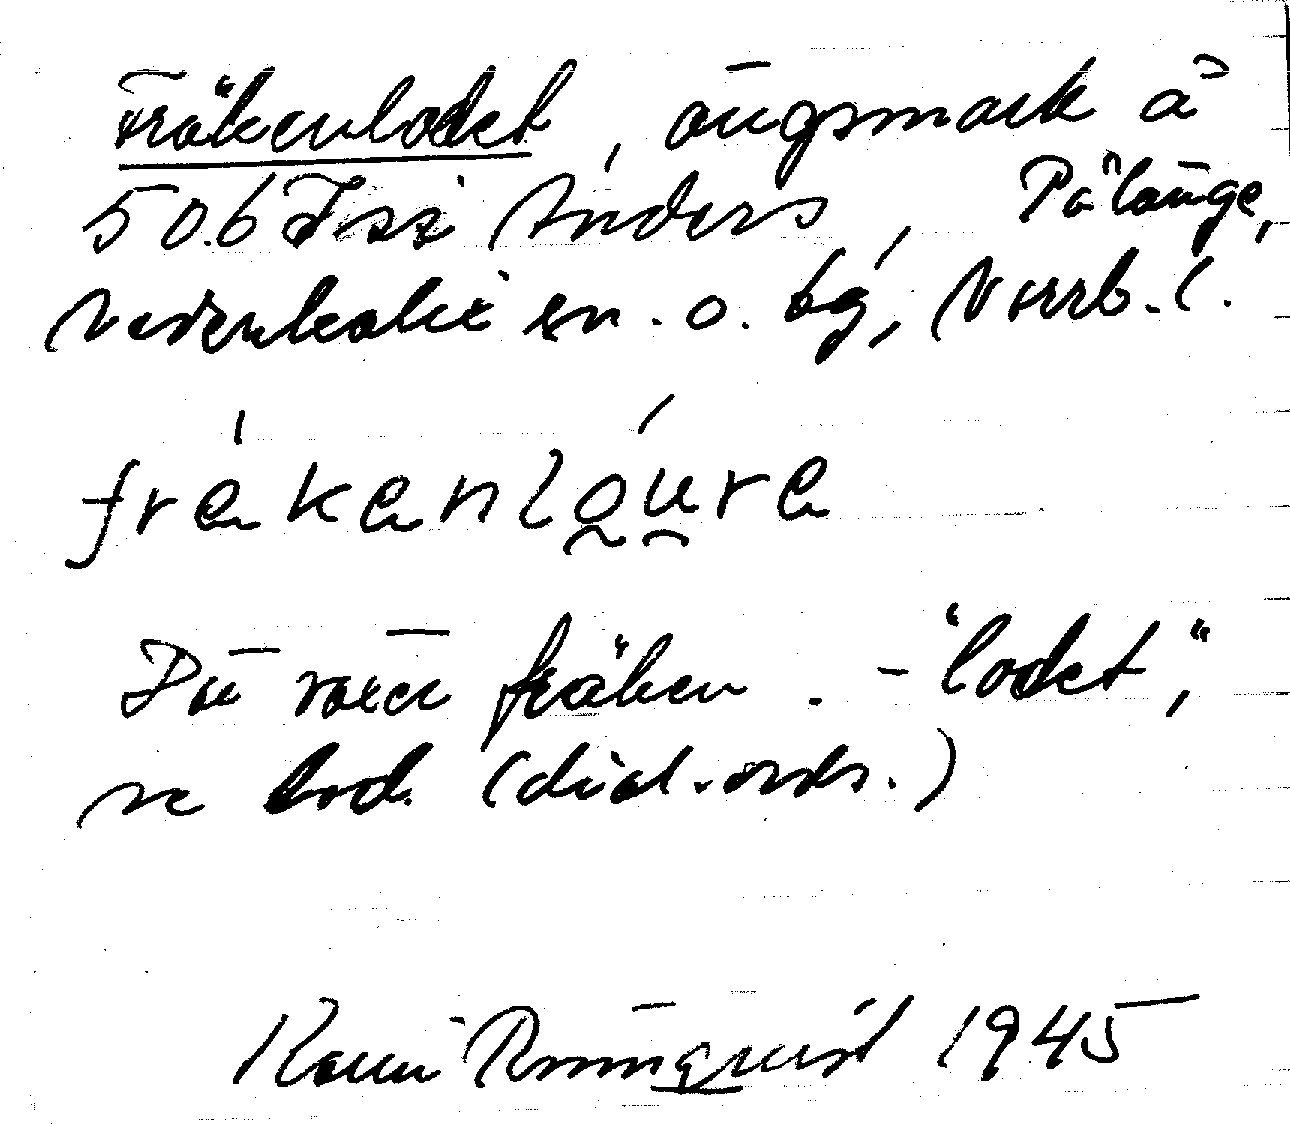 Fräkenlodet, ängsmark å
506 Issi Anders, Pålänge,
Nederkalix sn. o. bg, Norrb. l.
frękenlǫure
Där växer fräken. - "lodet",
se lod (dial.-ords.)
Karin Rönnqvist 1945